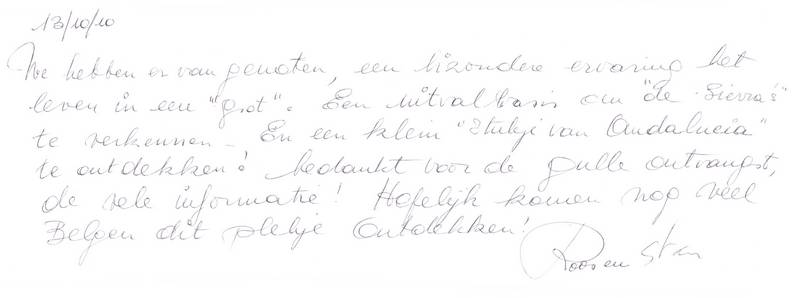 13/10/10
We hebben er van genoten, een bizondere ervaring het
leven in een "grot". Een uitvalbasis om "de Sierra's"
te verkennen - En een klein "Stukje van Andalucia"
te ontdekken! bedankt voor de gulle ontvangst,
de vele informatie! Hopelijk komen nog veel
Belgen dit plekje ontdekken!
Roos en Stan